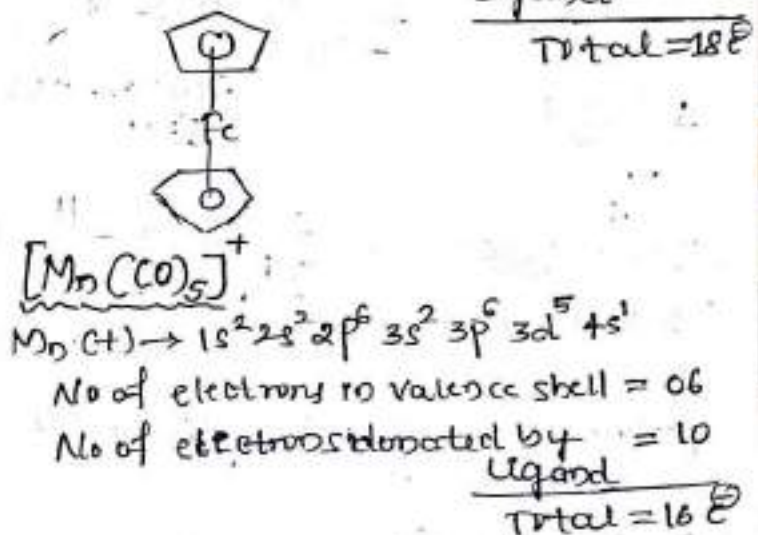 Total = 18 e⊖
Fe
[Mn(CO)5]+
Mn (+) → 1s² 2s² 2p⁶ 3s² 3p⁶ 3d⁵ 4s¹
No of electrons in valence shell = 06
No of electrons donated by = 10
Ligand
Total = 16 e⊖